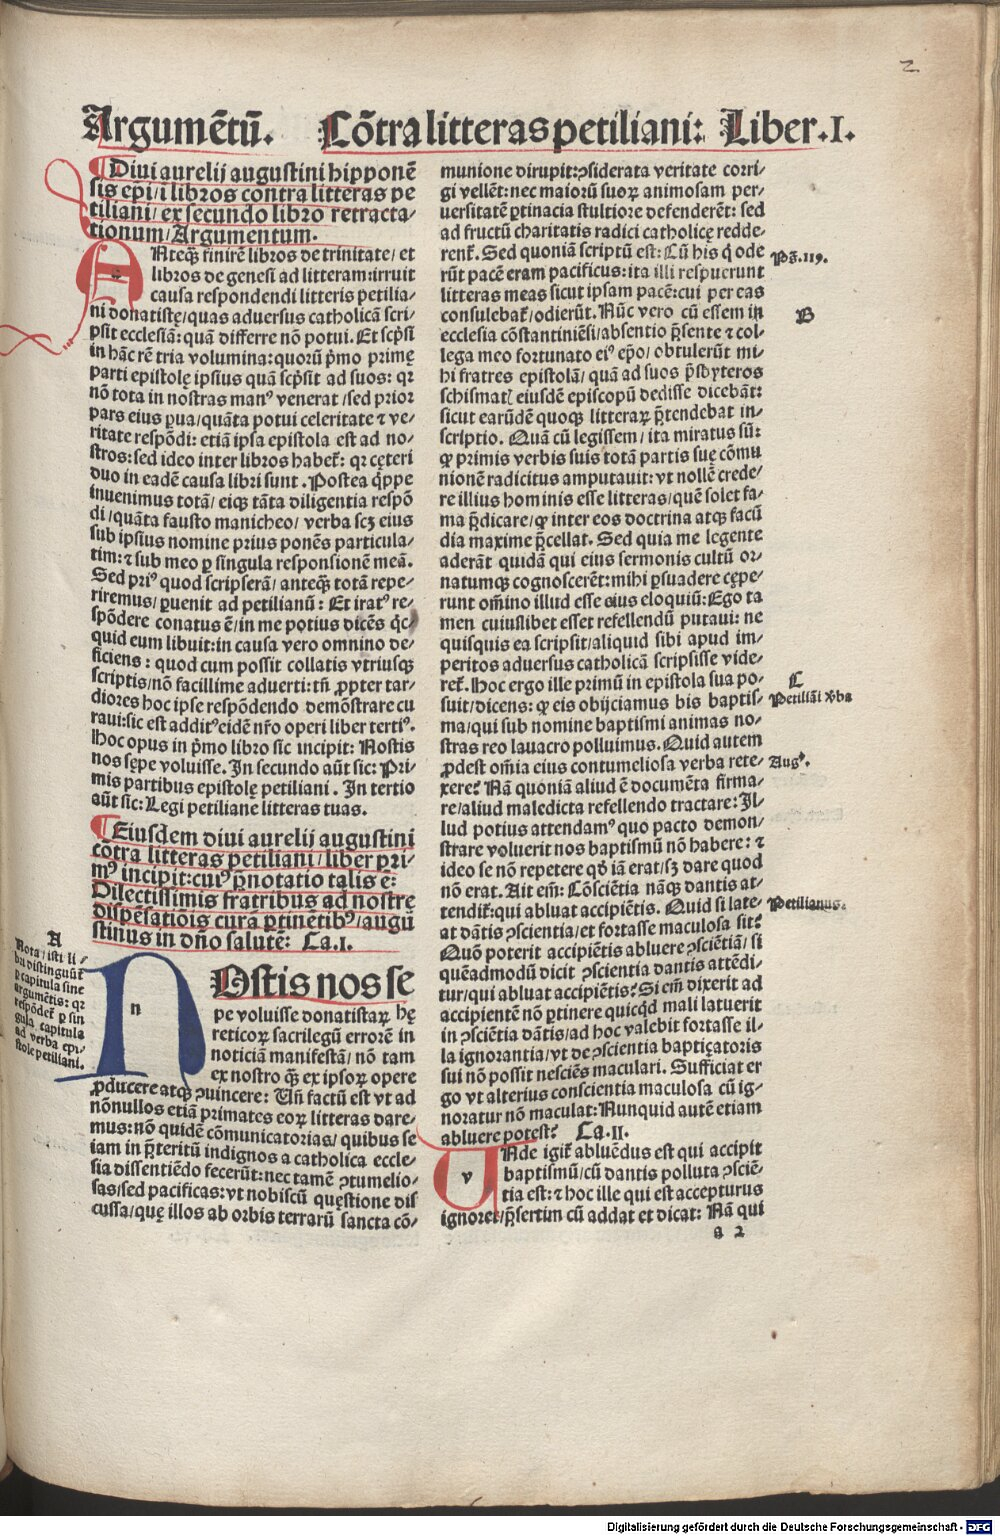 2
Argumētū. Cōtra litteras petiliani: Liber .I.
Diui aurelij augustini hipponē
sis ep̄i/ i libros contra litteras pe
tiliani/ ex secundo libro retracta/
tionum/ Argumentum.
ANteq̄ȝ finirē libros de trinitate/ et
libros de genesi ad litteram: irruit
causa respondendi litteris petilia/
ni donatistę/ quas aduersus catholicā scri/
psit ecclesiā: quā differre nō potui. Et sc̄psi
in hāc rē tria volumina: quorū p̄mo primę
parti epistolę ipsius quā sc̄psit ad suos: qꝛ
nō tota in nostras manꝰ venerat/ sed prior
pars eius ꝑua/ quāta potui celeritate ⁊ ve/
ritate respōdi: etiā ipsa epistola est ad no/
stros: sed ideo inter libros habet̄: qꝛ cęteri
duo in eadē causa libri sunt. Postea q̄ppe
inuenimus totā/ eiqꝫ tāta diligentia respō
di/ quāta fausto manicheo/ verba scꝫ eius
sub ipsius nomine prius ponēs particula/
tim: ⁊ sub meo ꝑ singula responsionē meā.
Sed priꝰ quod scripserā/ anteq̄ȝ totā repe/
riremus/ ꝑuenit ad petilianū: Et iratꝰ re/
spōdere conatus ē/ in me potius dicēs q̄c/
quid eum libuit: in causa vero omnino de/
ficiens: quod cum possit collatis vtriusqꝫ
scriptis/ nō facillime aduerti: tn̄ ꝓpter tar/
diores hoc ipse respōdendo demōstrare cu
raui: sic est additꝰ eidē nr̄o operi liber tertiꝰ.
Hoc opus in p̄mo libro sic incipit: Nostis
nos sępe voluisse. In secundo aūt sic: Pri/
mis partibus epistolę petiliani. In tertio
aūt sic: Legi petiliane litteras tuas.
Eiusdem diui aurelij augustini
cōtra litteras petiliani/ liber pri/
mꝰ incipit: cuiꝰ p̄notatio talis ē:
Dilectissimis fratribus ad nostrę
dispēsatiōis curā ꝑtinētibꝰ/ augu
stinus in dn̄o salutē: Ca.I.
A
Nota/ isti li/
bri distinguūt̄
ꝑ capitula sine
argumētis: qꝛ
respōdet̄ ꝑ sin
gula capitula
ad verba epi/
stole petiliani.
n
OStis nos sę
pe voluisse donatistaꝝ hę
reticoꝝ sacrilegū errorē in
noticiā manifestā/ nō tam
ex nostro q̄ȝ ex ipsoꝝ opere
ꝓducere atqꝫ ꝯuincere: Un̄ factū est vt ad
nōnullos etiā primates eoꝝ litteras dare/
mus: nō quidē cōmunicatorias/ quibus se
iam in p̄teritū indignos a catholica eccle/
sia dissentiēdo fecerūt: nec tamē ꝯtumelio/
sas/ sed pacificas: vt nobiscū quęstione dis
cussa/ quę illos ab orbis terrarū sancta cō/
munione dirupit: ꝯsiderata veritate corri/
gi vellēt: nec maiorū suoꝝ animosam per/
uersitatē ꝑtinacia stultiore defenderēt: sed
ad fructū charitatis radici catholicę redde/
rent̄. Sed quoniā scriptū est: Cū his q̄ ode
rūt pacē eram pacificus: ita illi respuerunt
litteras meas sicut ipsam pacē: cui per eas
consulebat̄/ odierūt. Nūc vero cū essem in
ecclesia cōstantiniēsi/ absentio p̄sente ⁊ col/
lega meo fortunato eiꝰ ep̄o/ obtulerūt mi/
hi fratres epistolā/ quā ad suos p̄sbyteros
schismatꝭ eiusdē episcopū dedisse dicebāt:
sicut earūdē quoqꝫ litteraꝝ p̄tendebat in/
scriptio. Quā cū legissem/ ita miratus sū:
ꝙ primis verbis suis totā partis suę cōmu
nionē radicitus amputauit: vt nollē crede/
re illius hominis esse litteras/ quē solet fa/
ma p̄dicare/ ꝙ inter eos doctrina atqꝫ facū
dia maxime p̄cellat. Sed quia me legente
aderāt quidā qui eius sermonis cultū or/
natumqꝫ cognoscerēt: mihi ꝑsuadere cępe/
runt om̄ino illud esse eius eloquiū: Ego ta
men cuiuslibet esset refellendū putaui: ne
quisquis ea scripsit/ aliquid sibi apud im/
peritos aduersus catholicā scripsisse vide/
ret̄. Hoc ergo ille primū in epistola sua po/
suit/ dicens: ꝙ eis obijciamus bis baptis/
ma/ qui sub nomine baptismi animas no/
stras reo lauacro polluimus. Quid autem
ꝓdest om̄ia eius contumeliosa verba rete/
xere? Nā quoniā aliud ē documēta firma/
re/ aliud maledicta refellendo tractare: Il/
lud potius attendamꝰ quo pacto demon/
strare voluerit nos baptismū nō habere: ⁊
ideo se nō repetere qd̄ iā erat/ sꝫ dare quod
nō erat. Ait em̄: Cōsciētia nāqꝫ dantis at/
tendit̄: qui abluat accipiētis. Quid si late/
at dātis ꝯscientia/ et fortasse maculosa sit?
Quō poterit accipiētis abluere ꝯsciētiā/ si
quēadmodū dicit ꝯscientia dantis attēdi/
tur/ qui abluat accipiētis? Si em̄ dixerit ad
accipientē nō ꝑtinere quicq̄d mali latuerit
in ꝯsciētia dātis/ ad hoc valebit fortasse il/
la ignorantia/ vt de ꝯscientia baptiçatoris
sui nō possit nesciēs maculari. Sufficiat er
go vt alterius conscientia maculosa cū ig/
noratur nō maculat: Nunquid autē etiam
abluere potest? Ca.II.
v
UNde igit̄ abluēdus est qui accipit
baptismū/ cū dantis polluta ꝯsciē/
tia est: ⁊ hoc ille qui est accepturus
ignoret/ p̄sertim cū addat et dicat: Nā qui
a 2
Ps̄.119.
B
C
Petiliāi v̄ba
Augꝰ.
Petilianus.
Digitalisierung gefördert durch die Deutsche Forschungsgemeinschaft - DFG